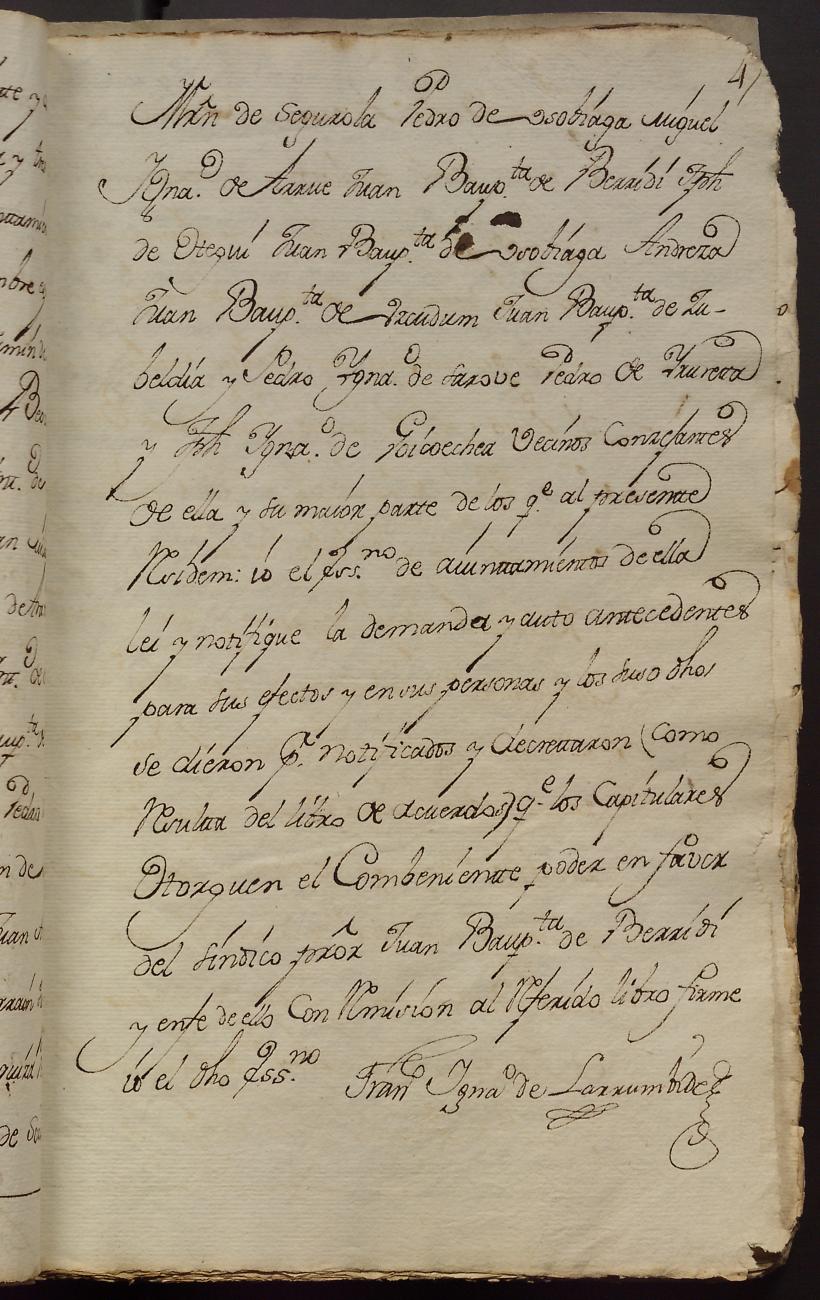 4
Mrn de Segurola Pedro de Osobiaga Miguel
Ygna.o de Arrue Juan Baup.ta de Berridi Jph
de Otegui Juan Baup.ta de Osobiaga Andreza
Juan Baup.ta de Ercudum Juan Baup.ta de Zu-
beldia y Pedro Ygna.o de Arrove Pedro de Yrureta
y Jph Ygna.o de Goicoechea Vecinos Conzejantes
de ella y su maior parte de los q.e al presente
Residem: io el Ess.no de aiuntamientos de ella
lei y notifique la demanda y auto antecedentes
para sus efectos y en sus personas y los suso dhos
se dieron p.r notificados y decretaron (como
Resulta del libro de Acuerdos) q.e los Capitulares
Otorguen el Combeniente poder en favor
del sindico prôr Juan Baup.ta de Berridi
y enfe de ello Con Remision al Referido libro firme
io el dho Ess.no Fran.co Igna.o de Larrumbide